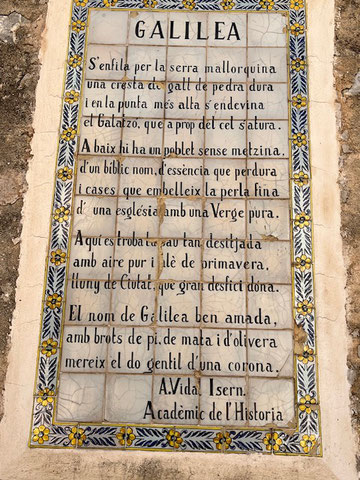 GALILEA
S'enfila per la serra mallorquina
una cresta de gall de pedra dura
i en la punta més alta s'endevina
el Galatzó, que a prop del cel s'atura.
A baix hi ha un poblet sense metzina,
d'un bíblic nom, d'essència que perdura
i cases que embelleix la perla fina
d'una església amb una Verge pura.
Aquí es troba la pau tan desitjada
amb aire pur i alè de primavera,
lluny de Ciutat, que gran desfici dona.
El nom de Galilea ben amada,
amb brots de pi, de mata i d'olivera
mereix el do gentil d'una corona.
A. Vidal Isern.
Acadèmic de l'Historia